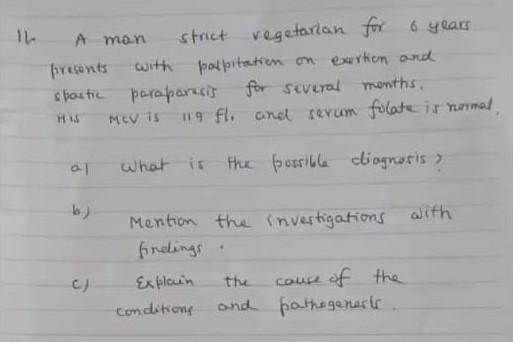 11. A man strict vegetarian for 6 years
presents with palpitation on exertion and
spastic paraparesis for several months.
His MCV is 119 fl. and serum folate is normal.
a) What is the possible diagnosis?
b) Mention the investigations with
findings.
c) Explain the cause of the
conditions and pathogenesis.